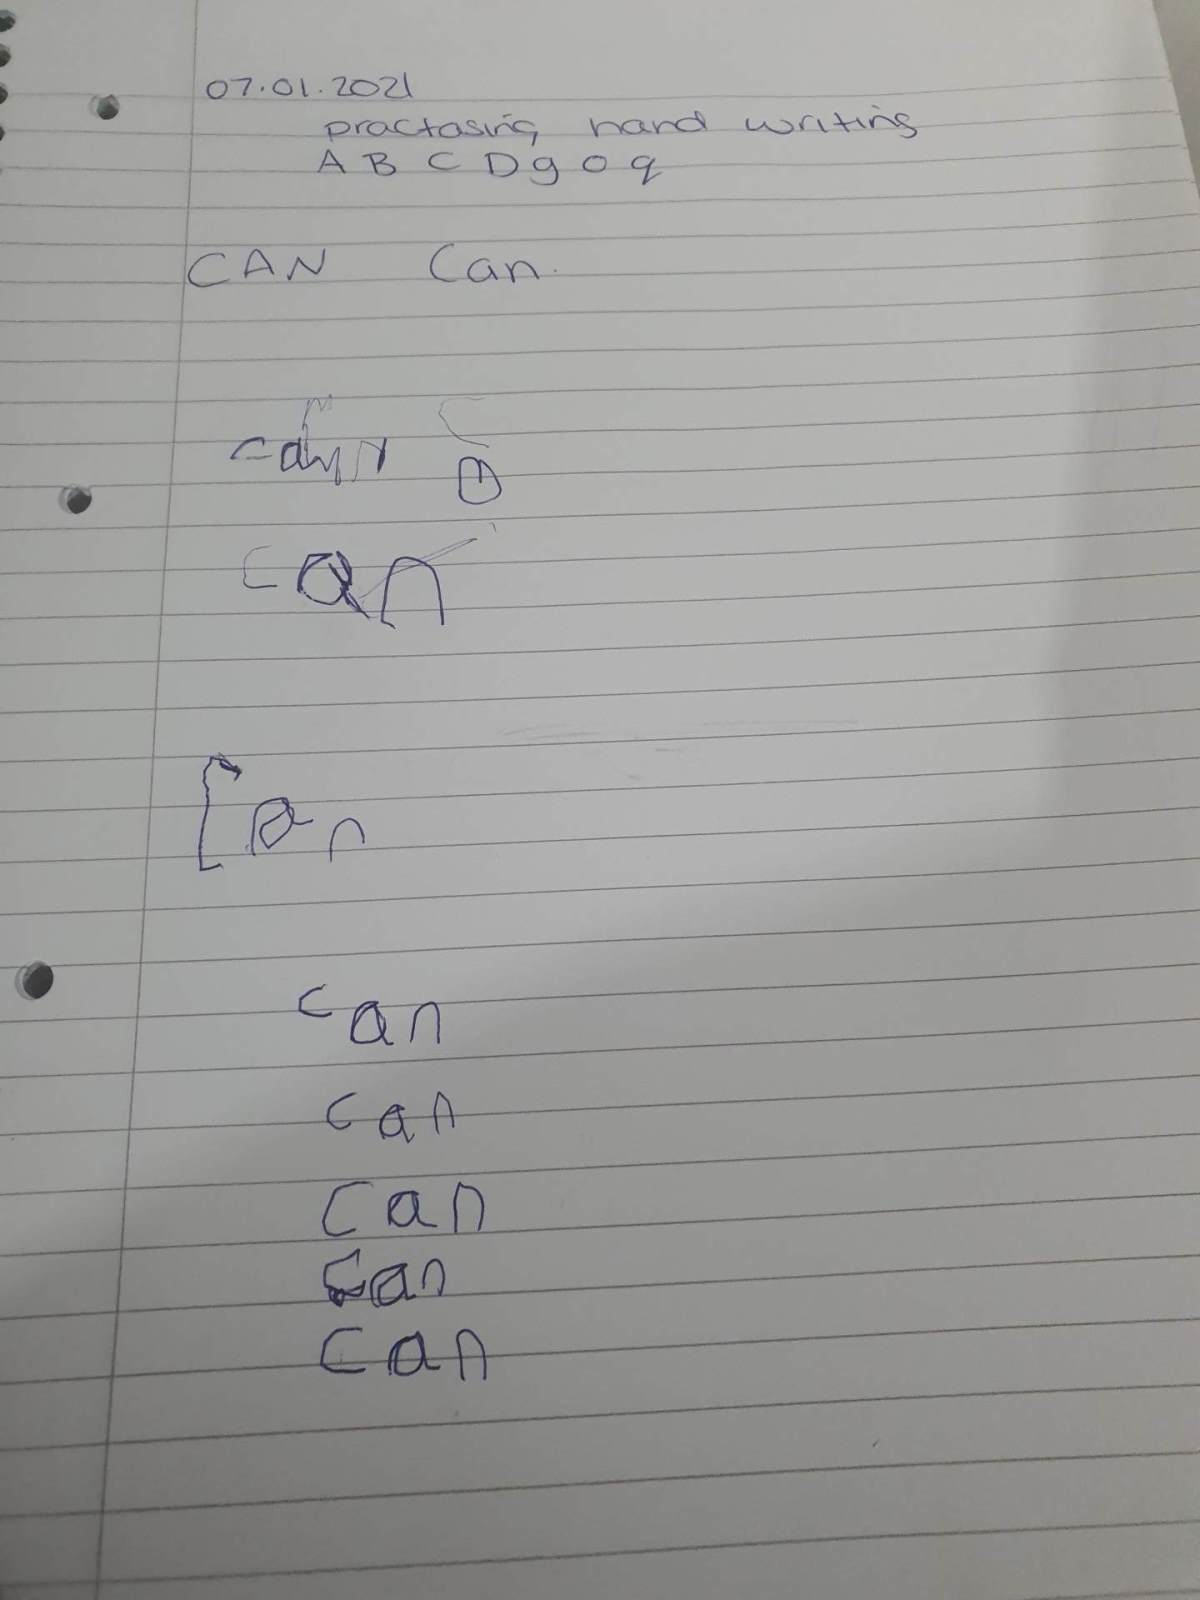 07.01.2021
practasing hand writing
A B C D g o q
CAN Can.
can
can
can
can
can
can
can